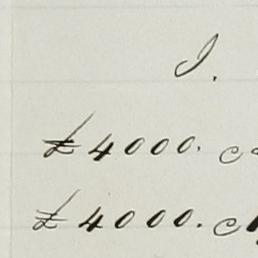 I.
£4000.
£4000.